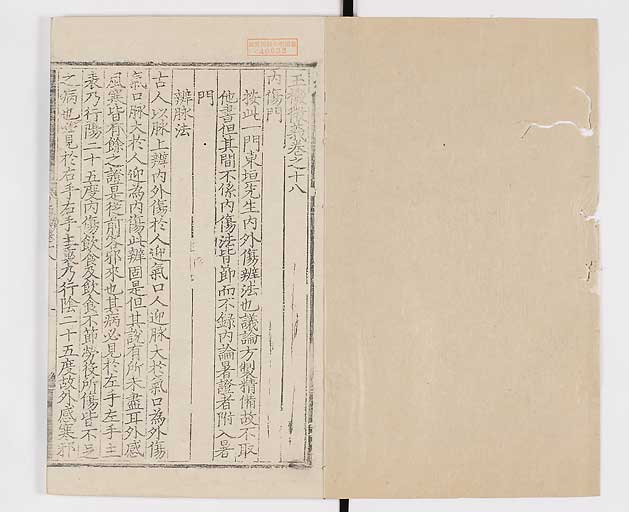 玉機微義卷之十八
內傷門
按此一門東垣先生內外傷辨法也議論方製精備故不取
他書但其間不係內傷法皆節而不錄內論暑證者附入暑
門
辨脉法
古人以脉上辨內外傷於人迎氣口人迎脉大於氣口為外傷
氣口脉大於人迎為內傷此辨固是但其說有所未盡耳外感
風寒皆有餘之證是從前客邪來也其病必見於左手左手主
表乃行陽二十五度內傷飲食及飲食不節勞役所傷皆不足
之病也必見於右手右手主裏乃行陰二十五度故外感寒邪